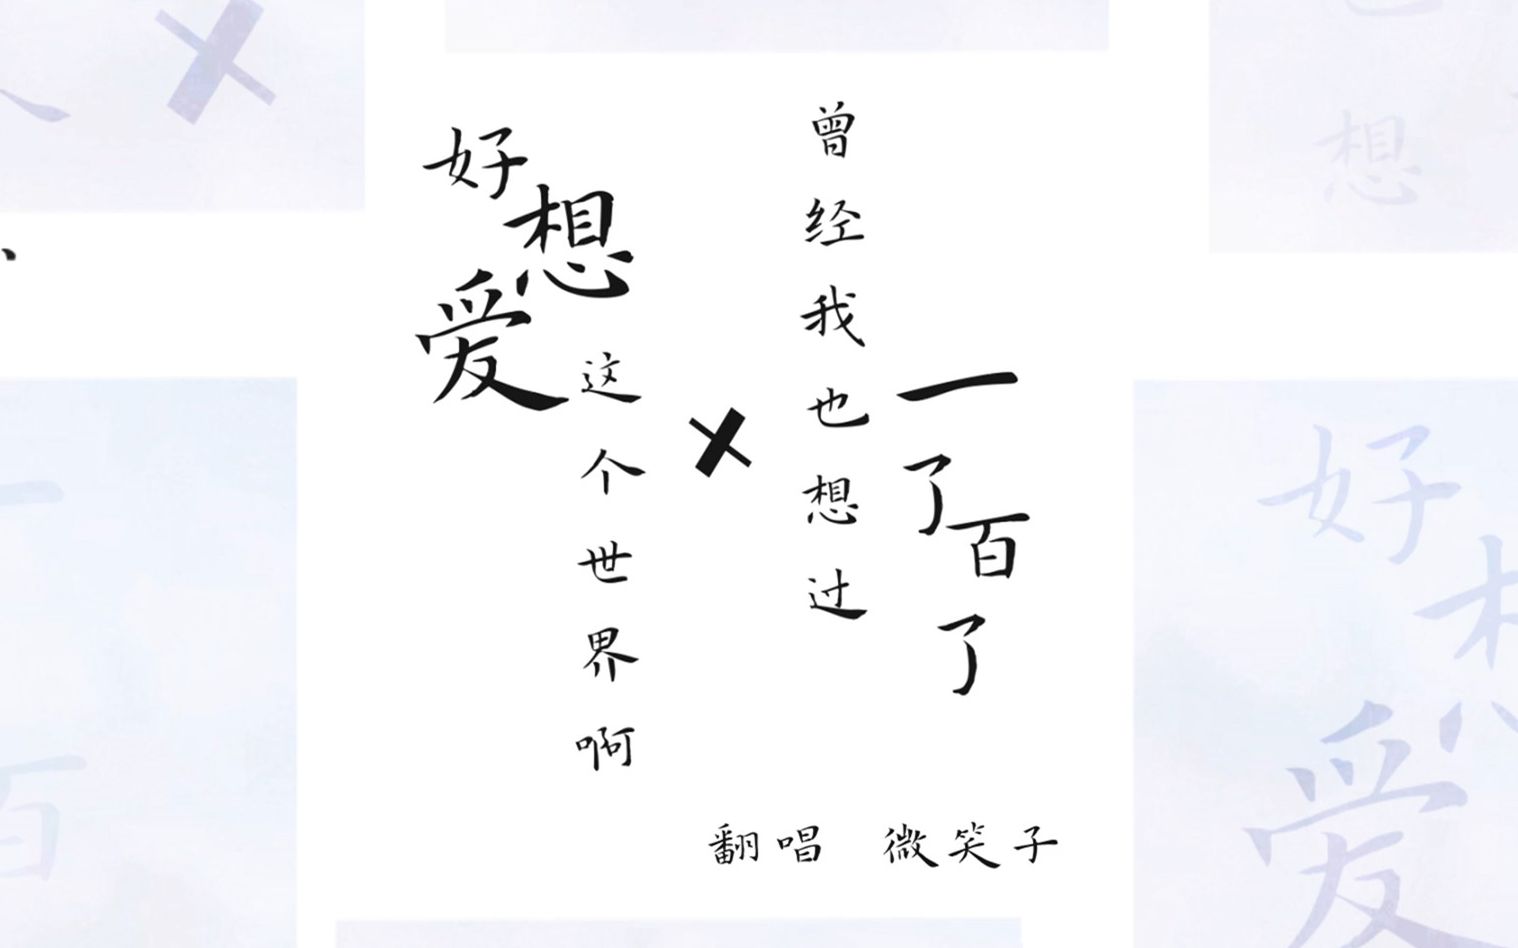 好想爱这个世界啊
×
曾经我也想过
一了百了
翻唱 微笑子
想
好想
爱
百